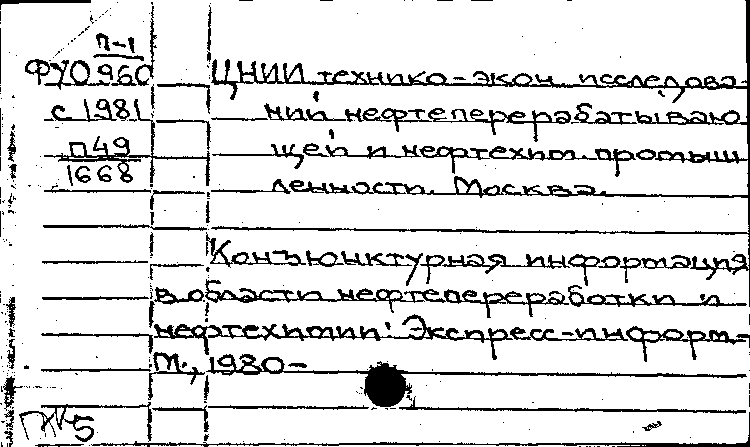 П-1
ФУО960 ЦНИИ технико-экон. исследова-
с 1981 ний нефтеперерабатываю
П49 щей и нефтехим. промыш
1668 ленности. Москва.
Конъюнктурная информация
в области нефтепереработки и
нефтехимии: Экспресс-информ.-
М., 1980-
ПК5